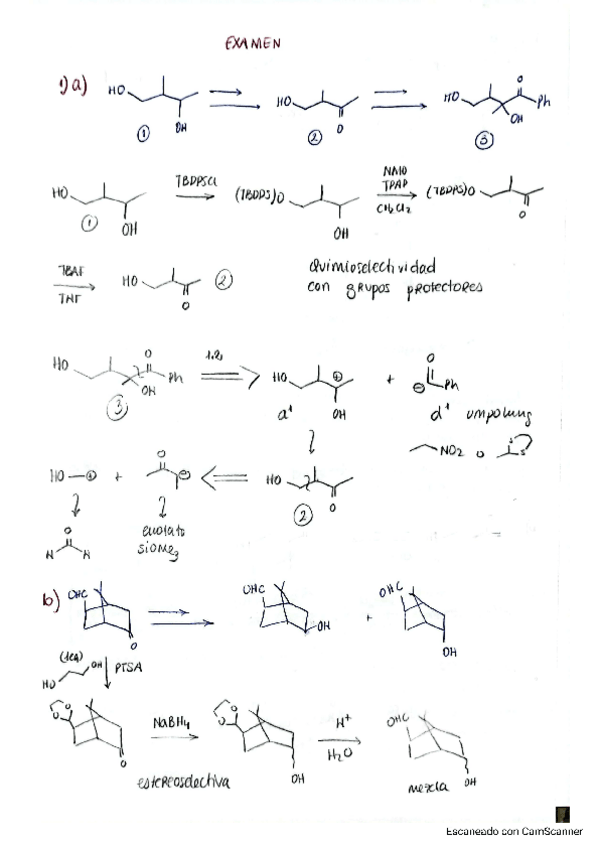 EXAMEN
1) a) HO OH ① HO O ② HO O Ph OH ③
HO OH ① TBDPSCl (TBDPS)O OH NMO TPAP CH2Cl2 (TBDPS)O O
TBAF THF HO O ② Quimioselectividad
con grupos protectores
HO O Ph OH ③ 1.2 HO ⊕ OH + O ⊖ Ph
a¹ d¹ umpolung
NO2 o S S
HO ⊕ + O ⊖ HO O ②
enolato
SiOMe3
O H H
b) OHC O OHC OH + OHC OH
(1eq) HO OH PTSA
O O O NaBH4 O O OH H+ H2O OHC OH
estereoselectiva mezcla
Escaneado con CamScanner